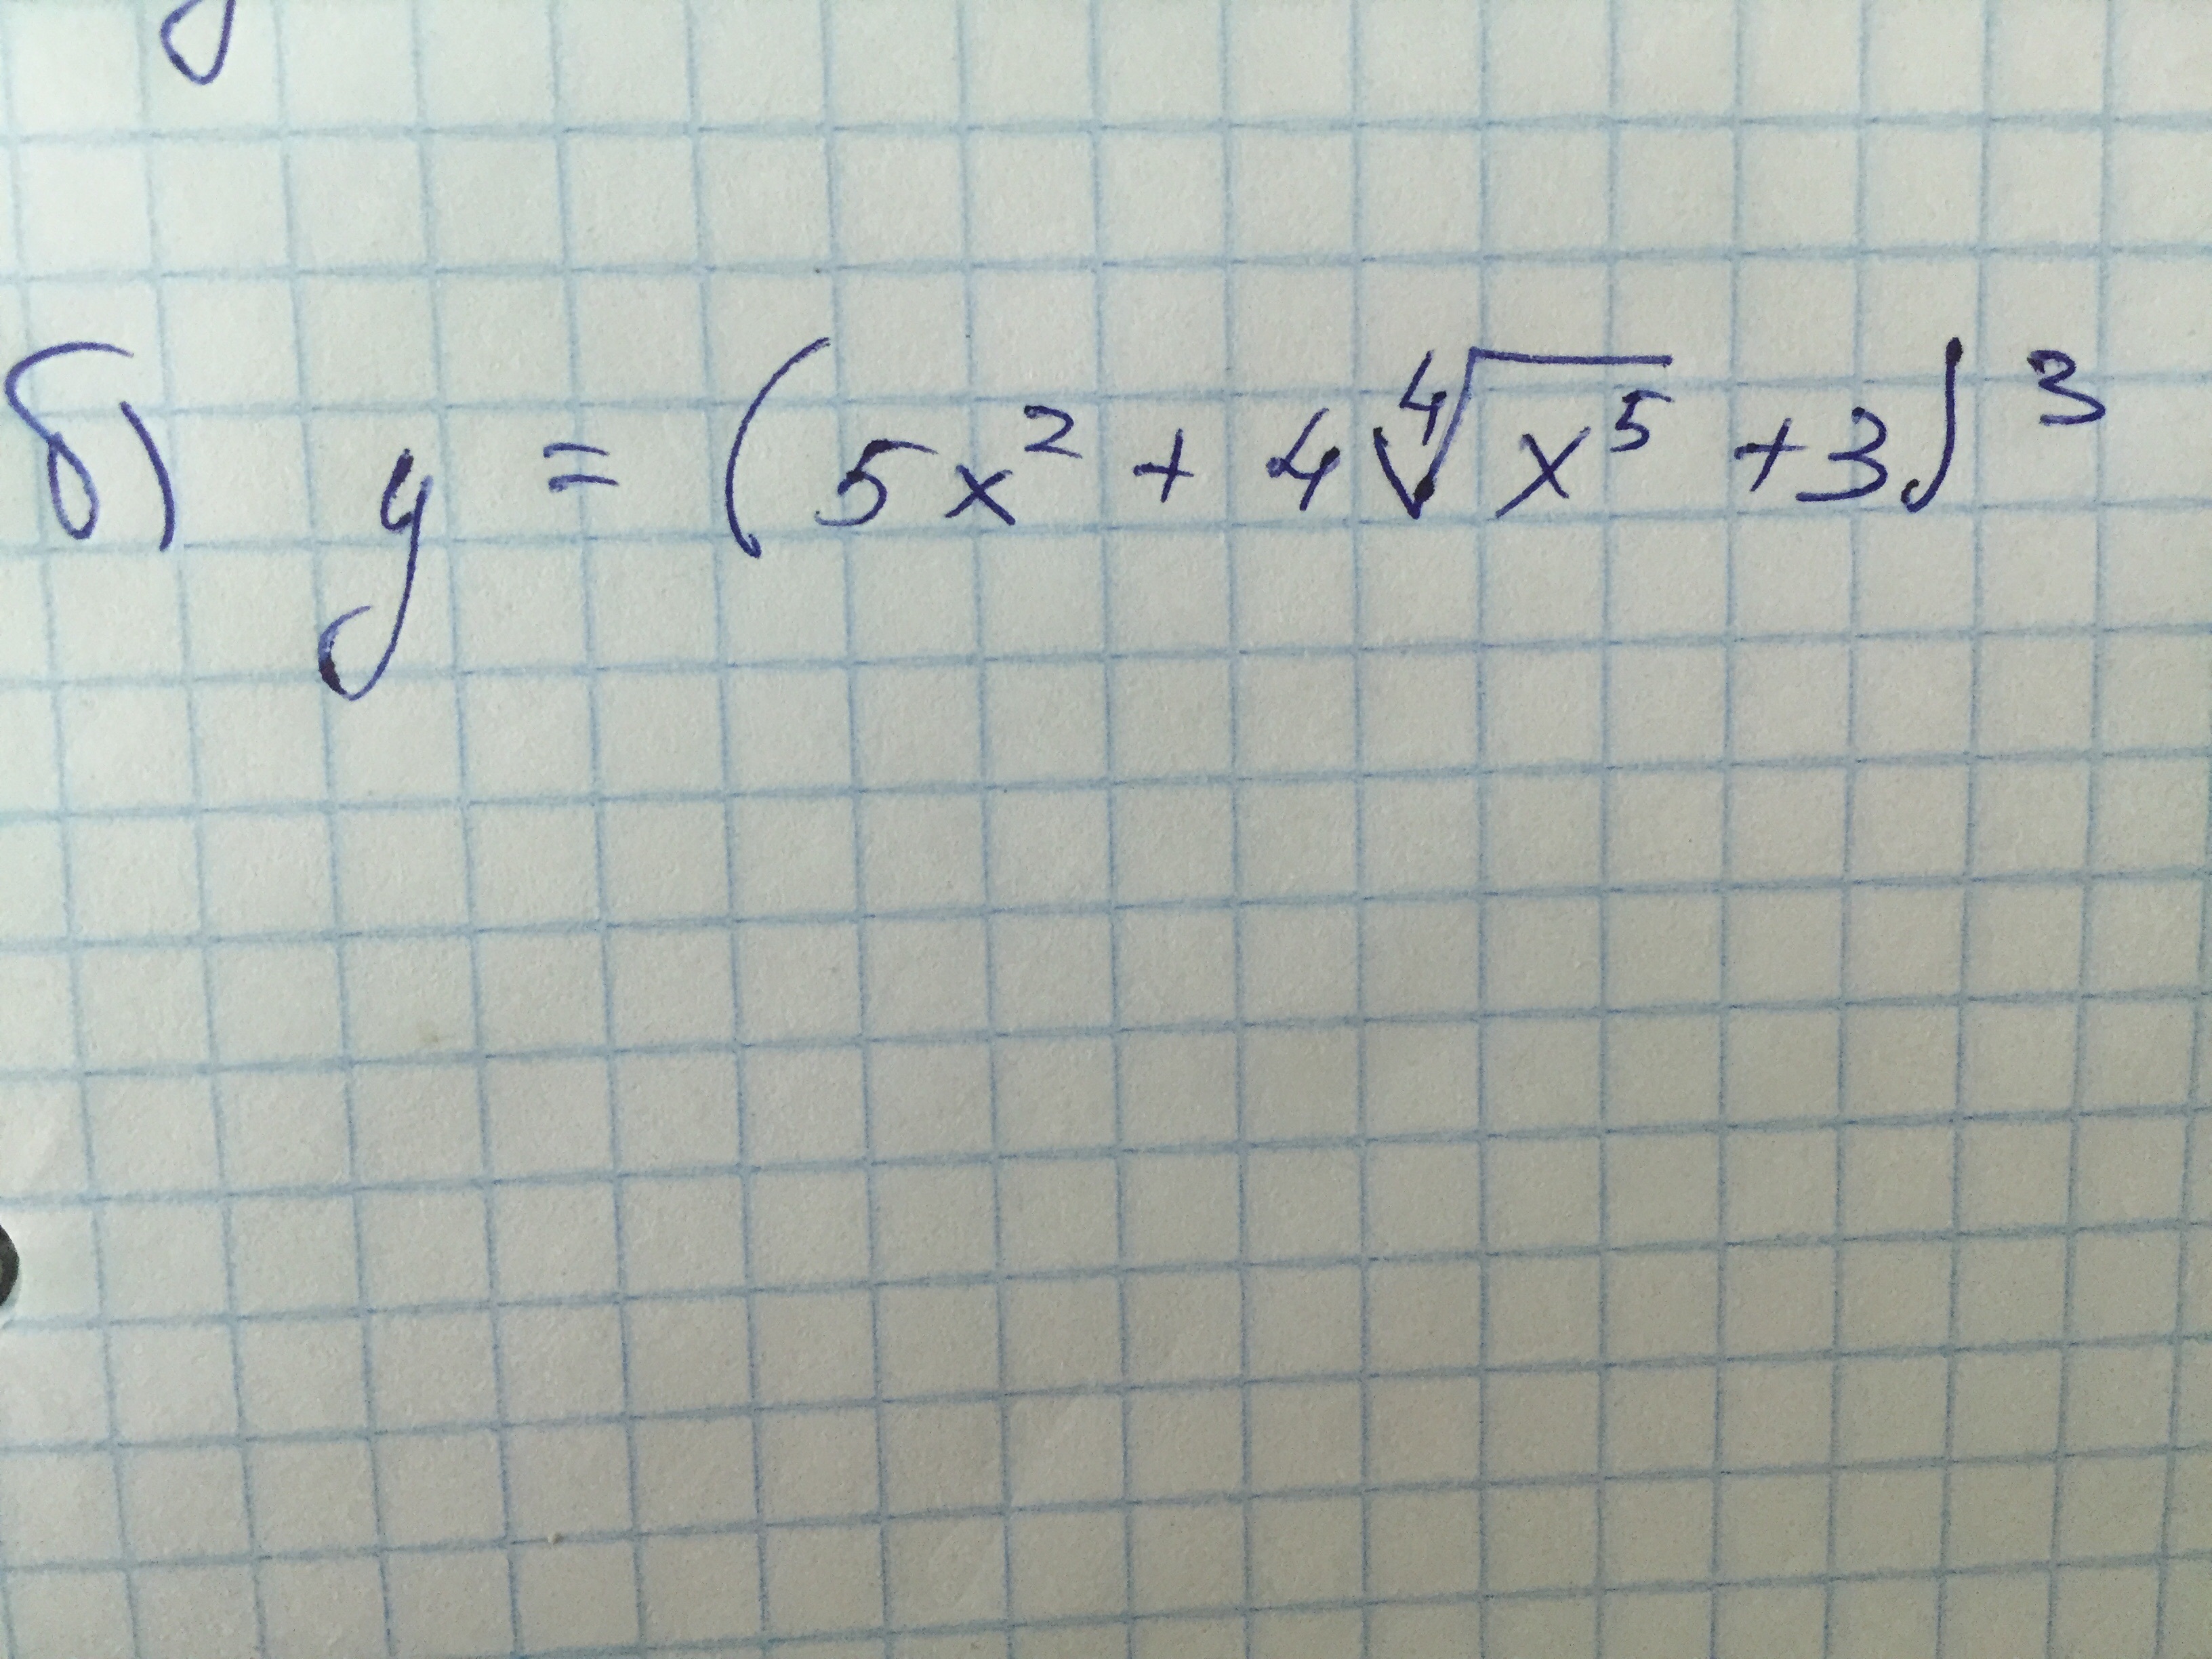 б) y = (5x² + 4∜x⁵ + 3)³